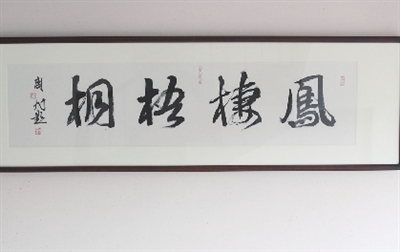 鳳棲梧桐